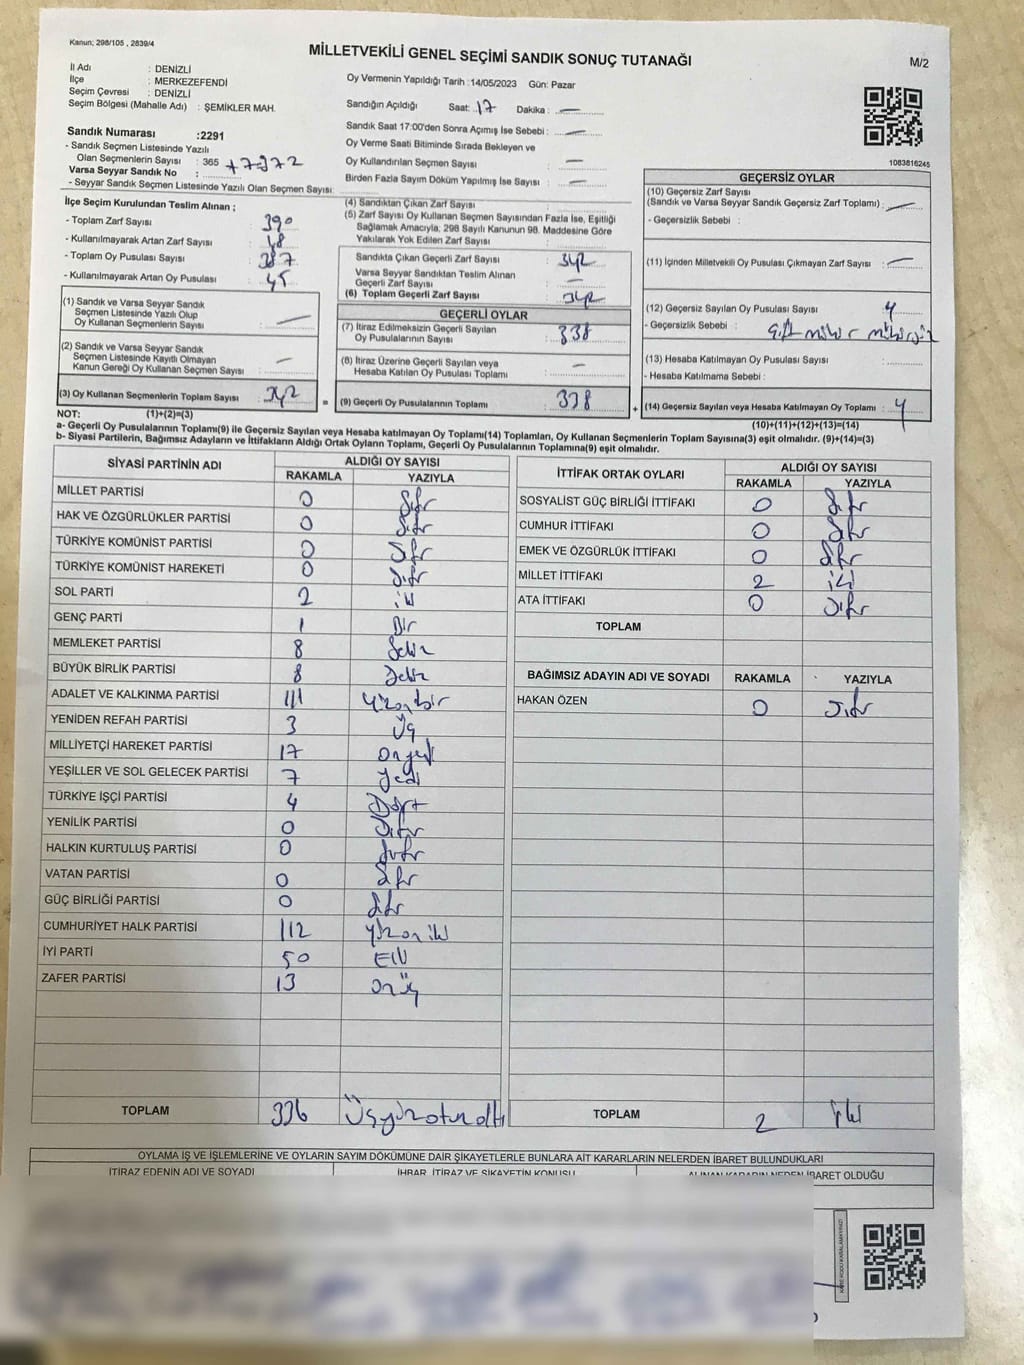 Kanun; 298/105 , 2839/4
MİLLETVEKİLİ GENEL SEÇİMİ SANDIK SONUÇ TUTANAĞI
M/2
İl Adı : DENİZLİ
İlçe : MERKEZEFENDİ
Seçim Çevresi : DENİZLİ
Seçim Bölgesi (Mahalle Adı) : ŞEMİKLER MAH.
Oy Vermenin Yapıldığı Tarih :14/05/2023 Gün: Pazar
Sandığın Açıldığı Saat: 17 Dakika : —
Sandık Saat 17:00'den Sonra Açımış İse Sebebi : —
Oy Verme Saati Bitiminde Sırada Bekleyen ve
Oy Kullandırılan Seçmen Sayısı : —
Birden Fazla Sayım Döküm Yapılmış İse Sayısı : —
1083816245
Sandık Numarası :2291
- Sandık Seçmen Listesinde Yazılı
Olan Seçmenlerin Sayısı : 365 +7=372
Varsa Seyyar Sandık No :
- Seyyar Sandık Seçmen Listesinde Yazılı Olan Seçmen Sayısı:
İlçe Seçim Kurulundan Teslim Alınan ;
- Toplam Zarf Sayısı : 390
- Kullanılmayarak Artan Zarf Sayısı : 48
- Toplam Oy Pusulası Sayısı : 387
- Kullanılmayarak Artan Oy Pusulası : 45
(1) Sandık ve Varsa Seyyar Sandık
Seçmen Listesinde Yazılı Olup
Oy Kullanan Seçmenlerin Sayısı : —
(2) Sandık ve Varsa Seyyar Sandık
Seçmen Listesinde Kayıtlı Olmayan
Kanun Gereği Oy Kullanan Seçmen Sayısı : —
(3) Oy Kullanan Seçmenlerin Toplam Sayısı : 342 =
(4) Sandıktan Çıkan Zarf Sayısı :
(5) Zarf Sayısı Oy Kullanan Seçmen Sayısından Fazla İse, Eşitliği
Sağlamak Amacıyla; 298 Sayılı Kanunun 98. Maddesine Göre
Yakılarak Yok Edilen Zarf Sayısı :
Sandıkta Çıkan Geçerli Zarf Sayısı : 342
Varsa Seyyar Sandıktan Teslim Alınan
Geçerli Zarf Sayısı : —
(6) Toplam Geçerli Zarf Sayısı : 342
GEÇERLİ OYLAR
(7) İtiraz Edilmeksizin Geçerli Sayılan
Oy Pusulalarının Sayısı : 338
(8) İtiraz Üzerine Geçerli Sayılan veya
Hesaba Katılan Oy Pusulası Toplamı : —
(9) Geçerli Oy Pusulalarının Toplamı : 338 +
GEÇERSİZ OYLAR
(10) Geçersiz Zarf Sayısı
(Sandık ve Varsa Seyyar Sandık Geçersiz Zarf Toplamı) : —
- Geçersizlik Sebebi :
(11) İçinden Milletvekili Oy Pusulası Çıkmayan Zarf Sayısı : —
(12) Geçersiz Sayılan Oy Pusulası Sayısı : 4
- Geçersizlik Sebebi : çift mühür mühürsüz
(13) Hesaba Katılmayan Oy Pusulası Sayısı :
- Hesaba Katılmama Sebebi :
(14) Geçersiz Sayılan veya Hesaba Katılmayan Oy Toplamı : 4
NOT: (1)+(2)=(3) (10)+(11)+(12)+(13)=(14)
a- Geçerli Oy Pusulalarının Toplamı(9) ile Geçersiz Sayılan veya Hesaba katılmayan Oy Toplamı(14) Toplamları, Oy Kullanan Seçmenlerin Toplam Sayısına(3) eşit olmalıdır. (9)+(14)=(3)
b- Siyasi Partilerin, Bağımsız Adayların ve İttifakların Aldığı Ortak Oyların Toplamı, Geçerli Oy Pusulalarının Toplamına(9) eşit olmalıdır.
SİYASİ PARTİNİN ADI ALDIĞI OY SAYISI
RAKAMLA YAZIYLA
MİLLET PARTİSİ 0 Sıfır
HAK VE ÖZGÜRLÜKLER PARTİSİ 0 Sıfır
TÜRKİYE KOMÜNİST PARTİSİ 0 Sıfır
TÜRKİYE KOMÜNİST HAREKETİ 0 Sıfır
SOL PARTİ 2 iki
GENÇ PARTİ 1 Bir
MEMLEKET PARTİSİ 8 Sekiz
BÜYÜK BİRLİK PARTİSİ 8 Sekiz
ADALET VE KALKINMA PARTİSİ 111 Yüzonbir
YENİDEN REFAH PARTİSİ 3 Üç
MİLLİYETÇİ HAREKET PARTİSİ 17 Onyedi
YEŞİLLER VE SOL GELECEK PARTİSİ 7 Yedi
TÜRKİYE İŞÇİ PARTİSİ 4 Dört
YENİLİK PARTİSİ 0 Sıfır
HALKIN KURTULUŞ PARTİSİ 0 Sıfır
VATAN PARTİSİ 0 Sıfır
GÜÇ BİRLİĞİ PARTİSİ 0 Sıfır
CUMHURİYET HALK PARTİSİ 112 Yüzoniki
İYİ PARTİ 50 Elli
ZAFER PARTİSİ 13 Onüç
TOPLAM 336 Üçyüzotuzaltı
İTTİFAK ORTAK OYLARI ALDIĞI OY SAYISI
RAKAMLA YAZIYLA
SOSYALİST GÜÇ BİRLİĞİ İTTİFAKI 0 Sıfır
CUMHUR İTTİFAKI 0 Sıfır
EMEK VE ÖZGÜRLÜK İTTİFAKI 0 Sıfır
MİLLET İTTİFAKI 2 iki
ATA İTTİFAKI 0 Sıfır
TOPLAM
BAĞIMSIZ ADAYIN ADI VE SOYADI RAKAMLA YAZIYLA
HAKAN ÖZEN 0 Sıfır
TOPLAM 2 İki
OYLAMA İŞ VE İŞLEMLERİNE VE OYLARIN SAYIM DÖKÜMÜNE DAİR ŞİKAYETLERLE BUNLARA AİT KARARLARIN NELERDEN İBARET BULUNDUKLARI
İTİRAZ EDENİN ADI VE SOYADI İHBAR, İTİRAZ VE ŞİKAYETİN KONUSU ALINAN KARARIN NEDEN İBARET OLDUĞU